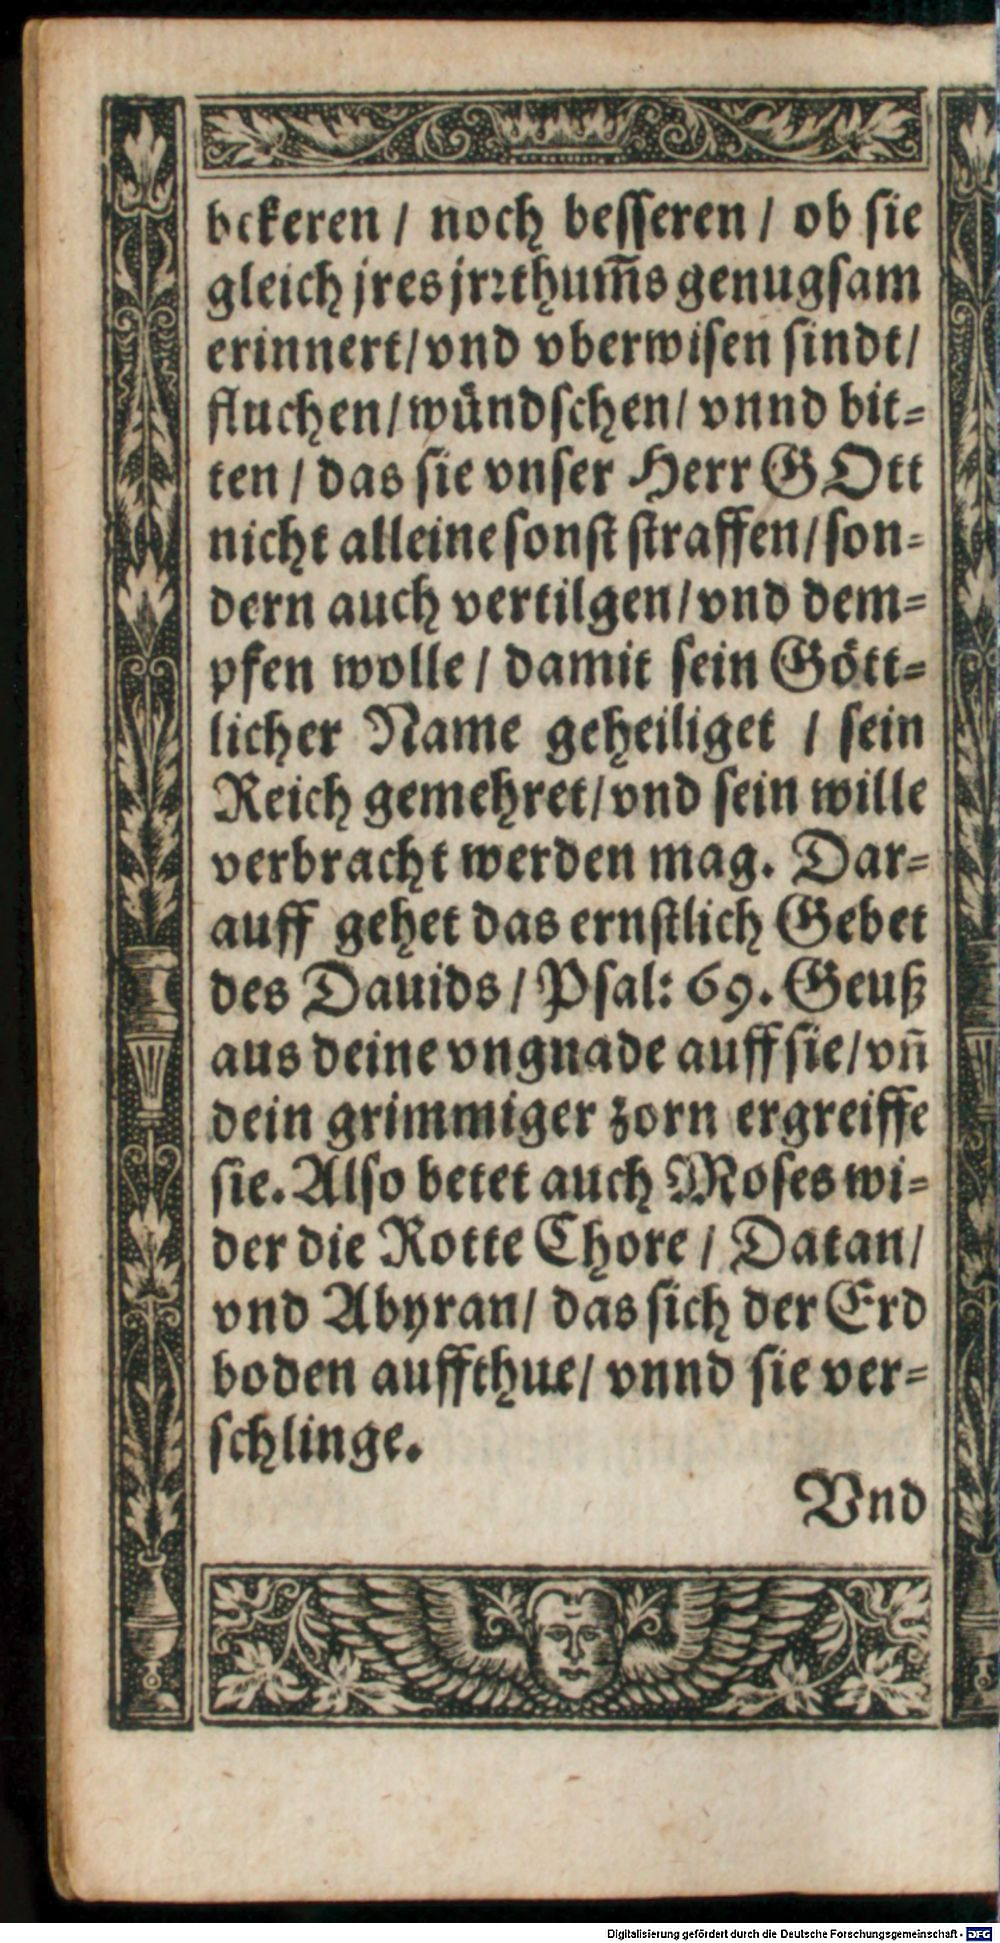 bekeren / noch beſſeren / ob ſie
gleich jres jrꝛthum̃s genugſam
erinnert / vnd vberwiſen ſindt /
fluchen / wuͤndſchen / vnnd bit⸗
ten / das ſie vnſer Herr GOtt
nicht alleine ſonſt ſtraffen / ſon⸗
dern auch vertilgen / vnd dem⸗
pfen wolle / damit ſein Goͤtt⸗
licher Name geheiliget / ſein
Reich gemehret / vnd ſein wille
verbracht werden mag. Dar⸗
auff gehet das ernſtlich Gebet
des Dauids / Pſal: 69. Geuß
aus deine vngnade auff ſie / vn̄
dein grimmiger zorn ergreiffe
ſie. Alſo betet auch Moſes wi⸗
der die Rotte Chore / Datan /
vnd Abyran / das ſich der Erd
boden auffthue / vnnd ſie ver⸗
ſchlinge.
Vnd
Digitalisierung gefördert durch die Deutsche Forschungsgemeinschaft - DFG